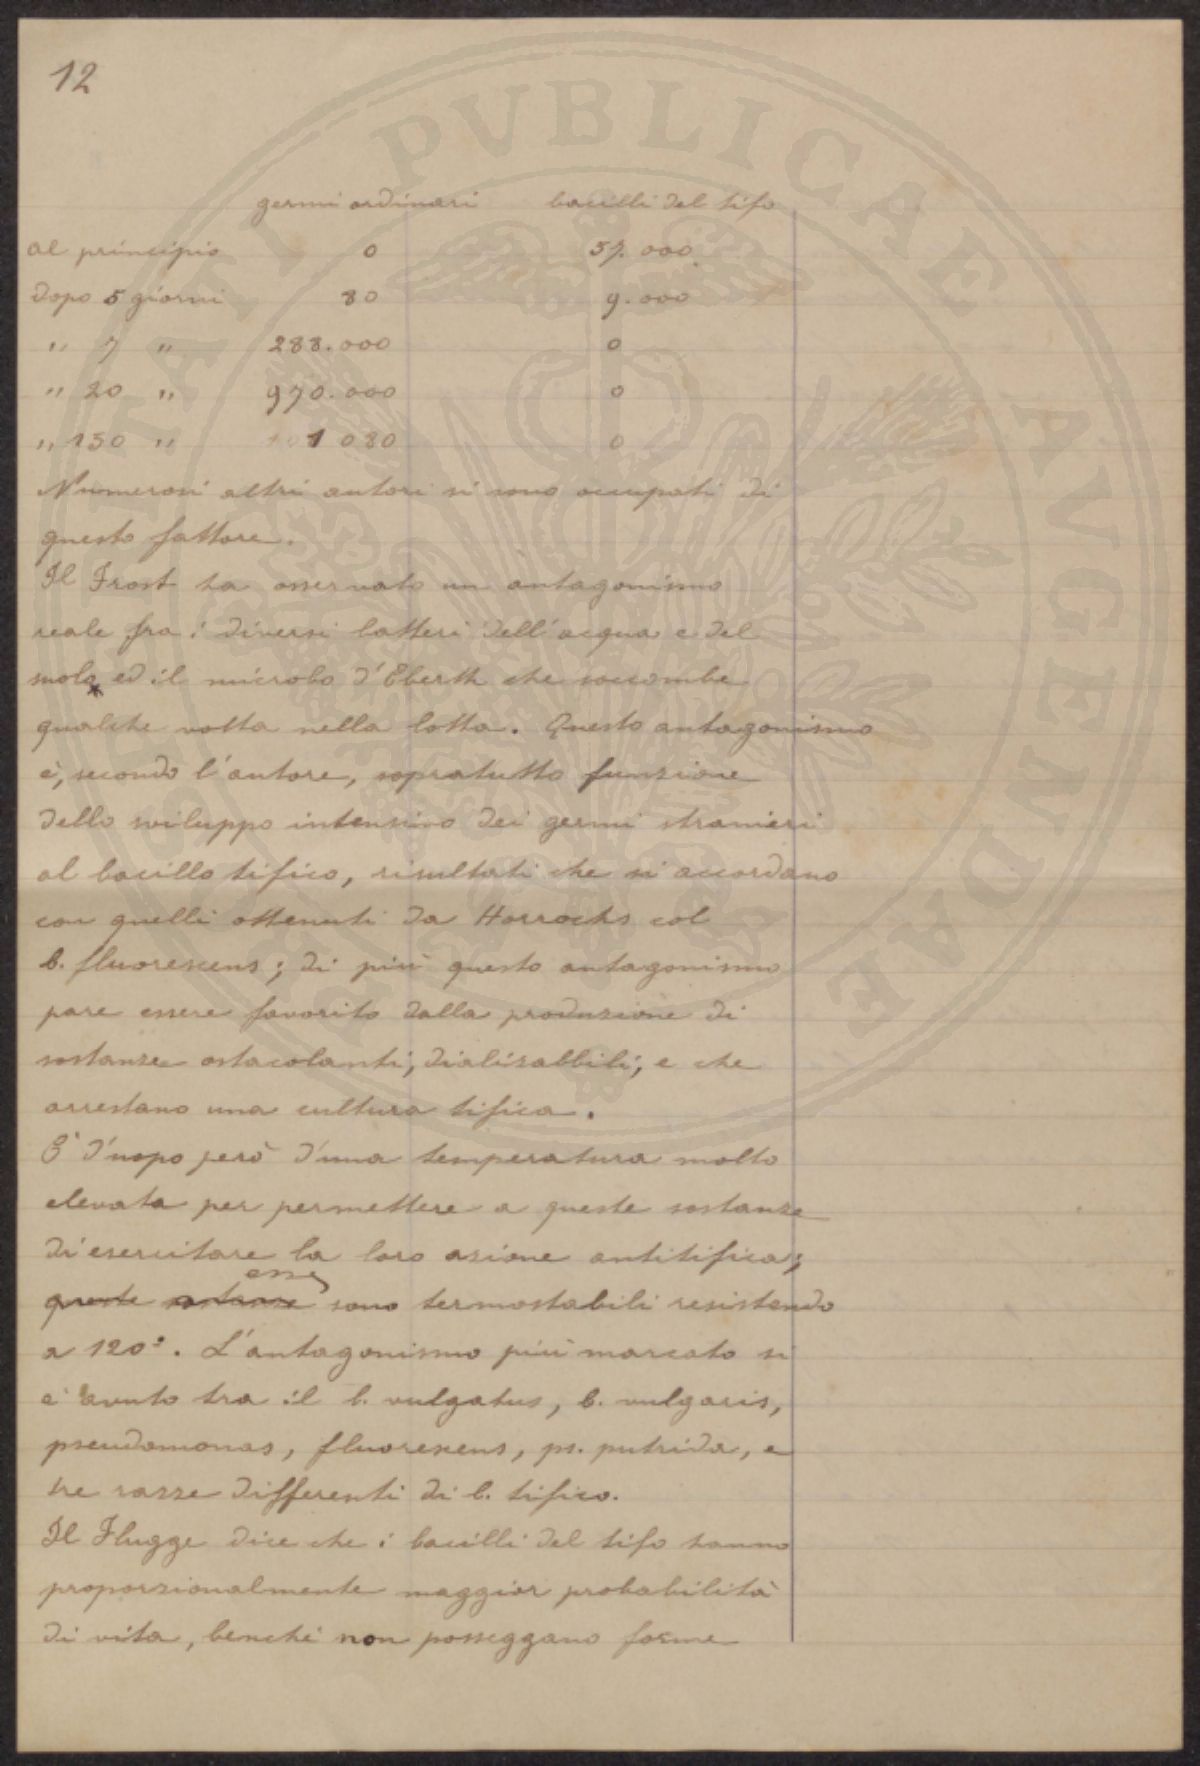 12
germi ordinari bacilli del tifo
al principio 0 57.000
dopo 5 giorni 80 9.000
" 7 " 288.000 0
" 20 " 970.000 0
" 130 " 101080 0
Numerosi altri autori si sono occupati di
questo fattore.
Il Frost ha osservato un antagonismo
reale fra i diversi batteri dell'acqua e del
suolo ed il microbo d'Eberth che soccombe
qualche volta nella lotta. Questo antagonismo
è, secondo l'autore, sopratutto funzione
dello sviluppo intensivo dei germi stranieri
al bacillo tifico, risultati che si accordano
con quelli ottenuti da Horrocks col
b. fluorescens; di più questo antagonismo
pare essere favorito dalla produzione di
sostanze ostacolanti, dializabbili, e che
arrestano una cultura tifica.
È d'uopo però d'una temperatura molto
elevata per permettere a queste sostanze
di esercitare la loro azione antitifica;
esse
queste sostanze sono termostabili resistendo
a 120°. L'antagonismo più marcato si
è avuto tra il b. vulgatus, b. vulgaris,
pseudomonas, fluorescens, ps. putrida, e
tre razze differenti di b. tifico.
Il Flugge dice che i bacilli del tifo hanno
proporzionalmente maggior probabilità
di vita, benchè non posseggano forme
PVBLICAE AVGENDAE